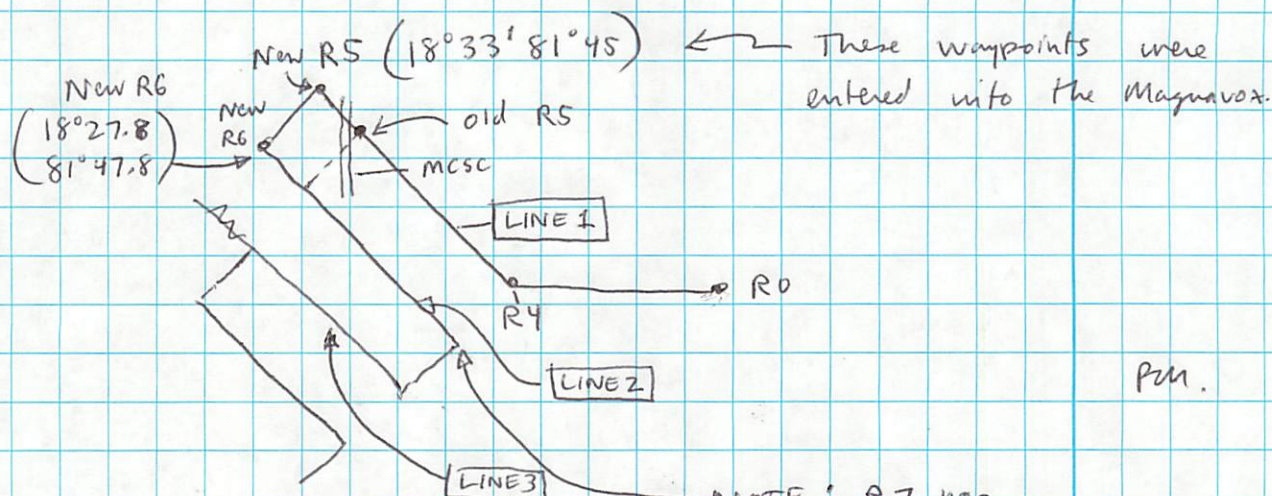 New R5 (18°33' 81°45) ← These waypoints were
entered into the Magnavox.
New R6
(18°27.8
81°47.8)
New
R6
old R5
MCSC
LINE 1
R0
R4
LINE 2
LINE3
NOTE: R7